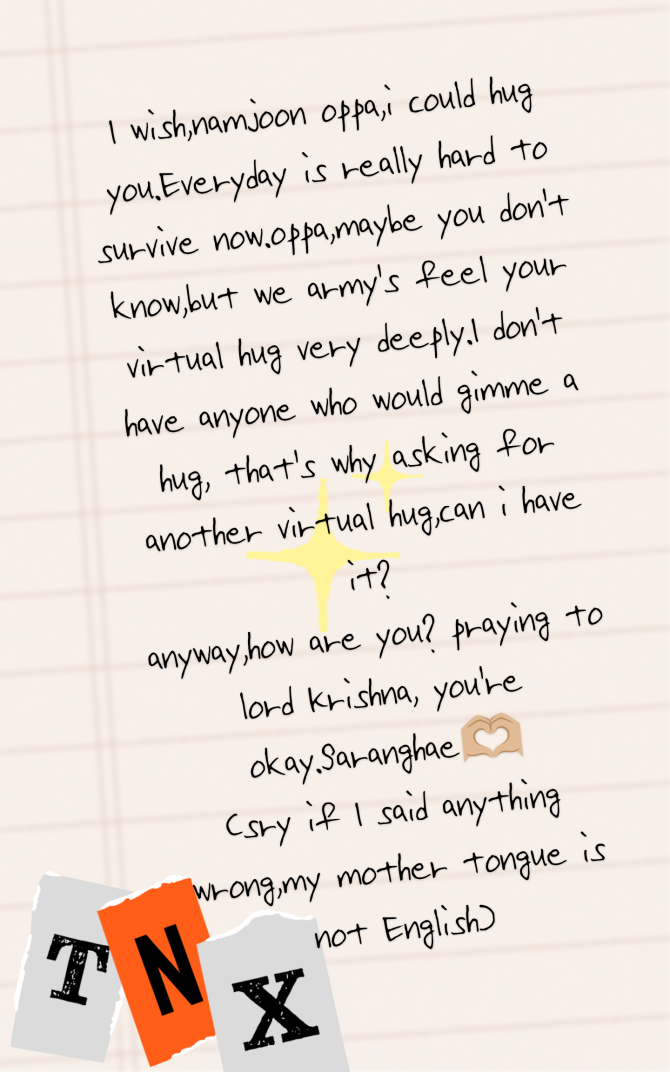 I wish,namjoon oppa,i could hug
you.Everyday is really hard to
survive now.oppa,maybe you don't
know,but we army's feel your
virtual hug very deeply.I don't
have anyone who would gimme a
hug, that's why asking for
another virtual hug,can i have
it?
anyway,how are you? praying to
lord krishna, you're
okay.Saranghae
(sry if I said anything
wrong,my mother tongue is
not English)
TNX